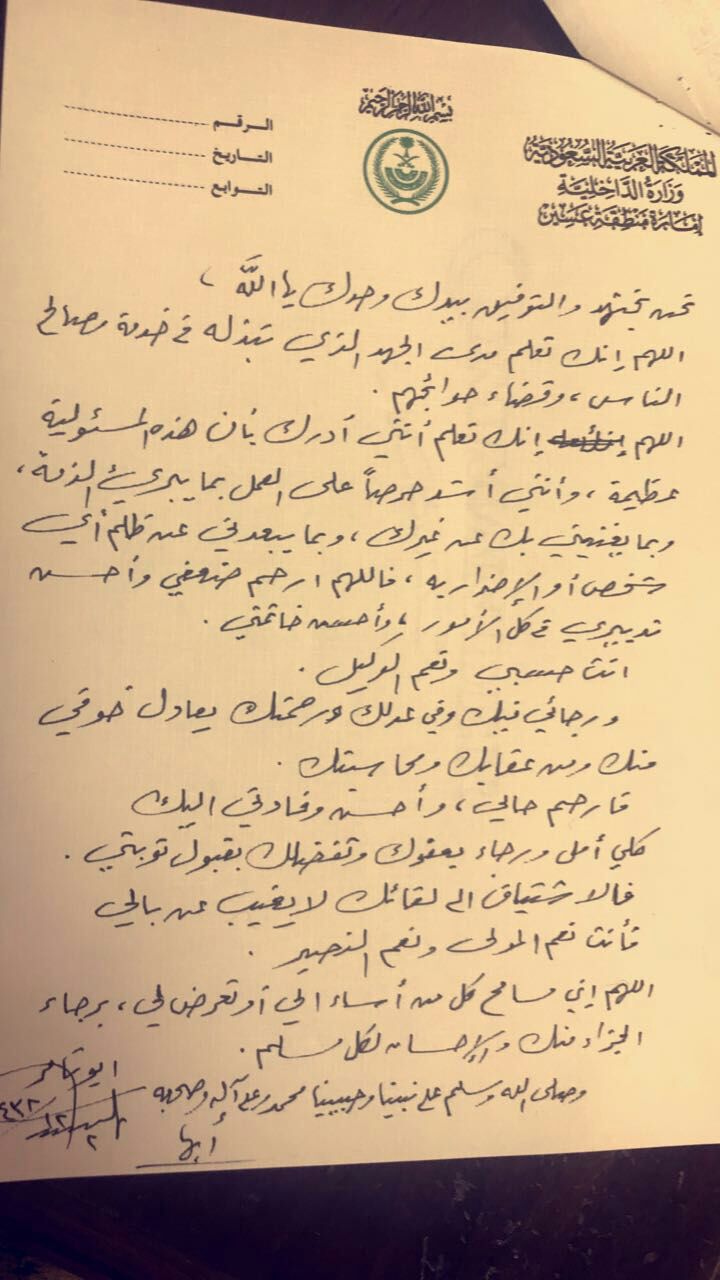 بسم الله الرحمن الرحيم
المملكة العربية السعودية
وزارة الداخلية
إمارة منطقة عسير
الرقم
التاريخ
التوابع
نحن نجتهد والتوفيق بيدك وحدك يا الله ،
اللهم إنك تعلم مدى الجهد الذي نبذله في خدمة مصالح
الناس ، وقضاء حوائجهم .
اللهم إنك تعلم أنني أدرك بأن هذه المسئولية
عظيمة ، وأنني أشد حرصاً على العمل بما يبريء الذمة ،
وبما يغنيني بك عن غيرك ، وبما يبعدني عن ظلم أي
شخص أو الإضرار به ، فاللهم ارحم ضعفي وأحسن
تدبيري في كل الأمور ، وأحسن خاتمتي .
انت حسبي ونعم الوكيل .
ورجائي فيك وفي عدلك ورحمتك يعادل خوفي
منك ومن عقابك ومحاسبتك .
فارحم حالي ، وأحسن وفادتي اليك
كلي أمل ورجاء بعفوك وتفضلك بقبول توبتي .
فالاشتياق الى لقائك لا يغيب عن بالي
فأنت نعم المولى ونعم النصير .
اللهم إني مسامح كل من أساء الي أو تعرض لي ، برجاء
الجزاء منك والإحسان لكل مسلم .
وصلى الله وسلم على نبينا وحبيبنا محمد وعلى آله وصحبه
أبها